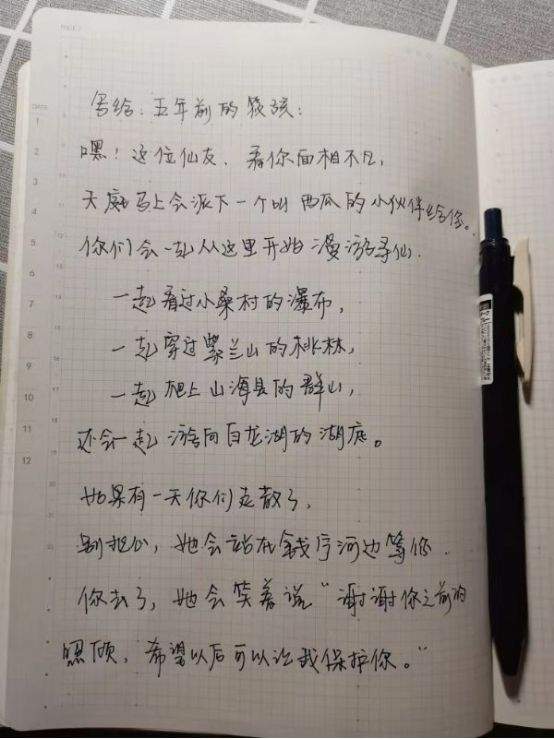 写给:五年前的筱孩:
嘿!这位仙友,看你面相不凡,
天庭马上会派下一个叫西瓜的小伙伴给你。
你们会一起从这里开始漫游寻仙.
一起看过小桑村的瀑布,
一起穿过紫兰山的桃林,
一起爬上山海县的群山,
还会一起游向白龙湖的湖底。
如果有一天你们走散了,
别担心,她会站在钱宁河边等你.
你去了,她会笑着说“谢谢你之前的
照顾,希望以后可以让我保护你。”
PAGE
DATE
1
2
3
4
5
6
7
8
9
10
11
12